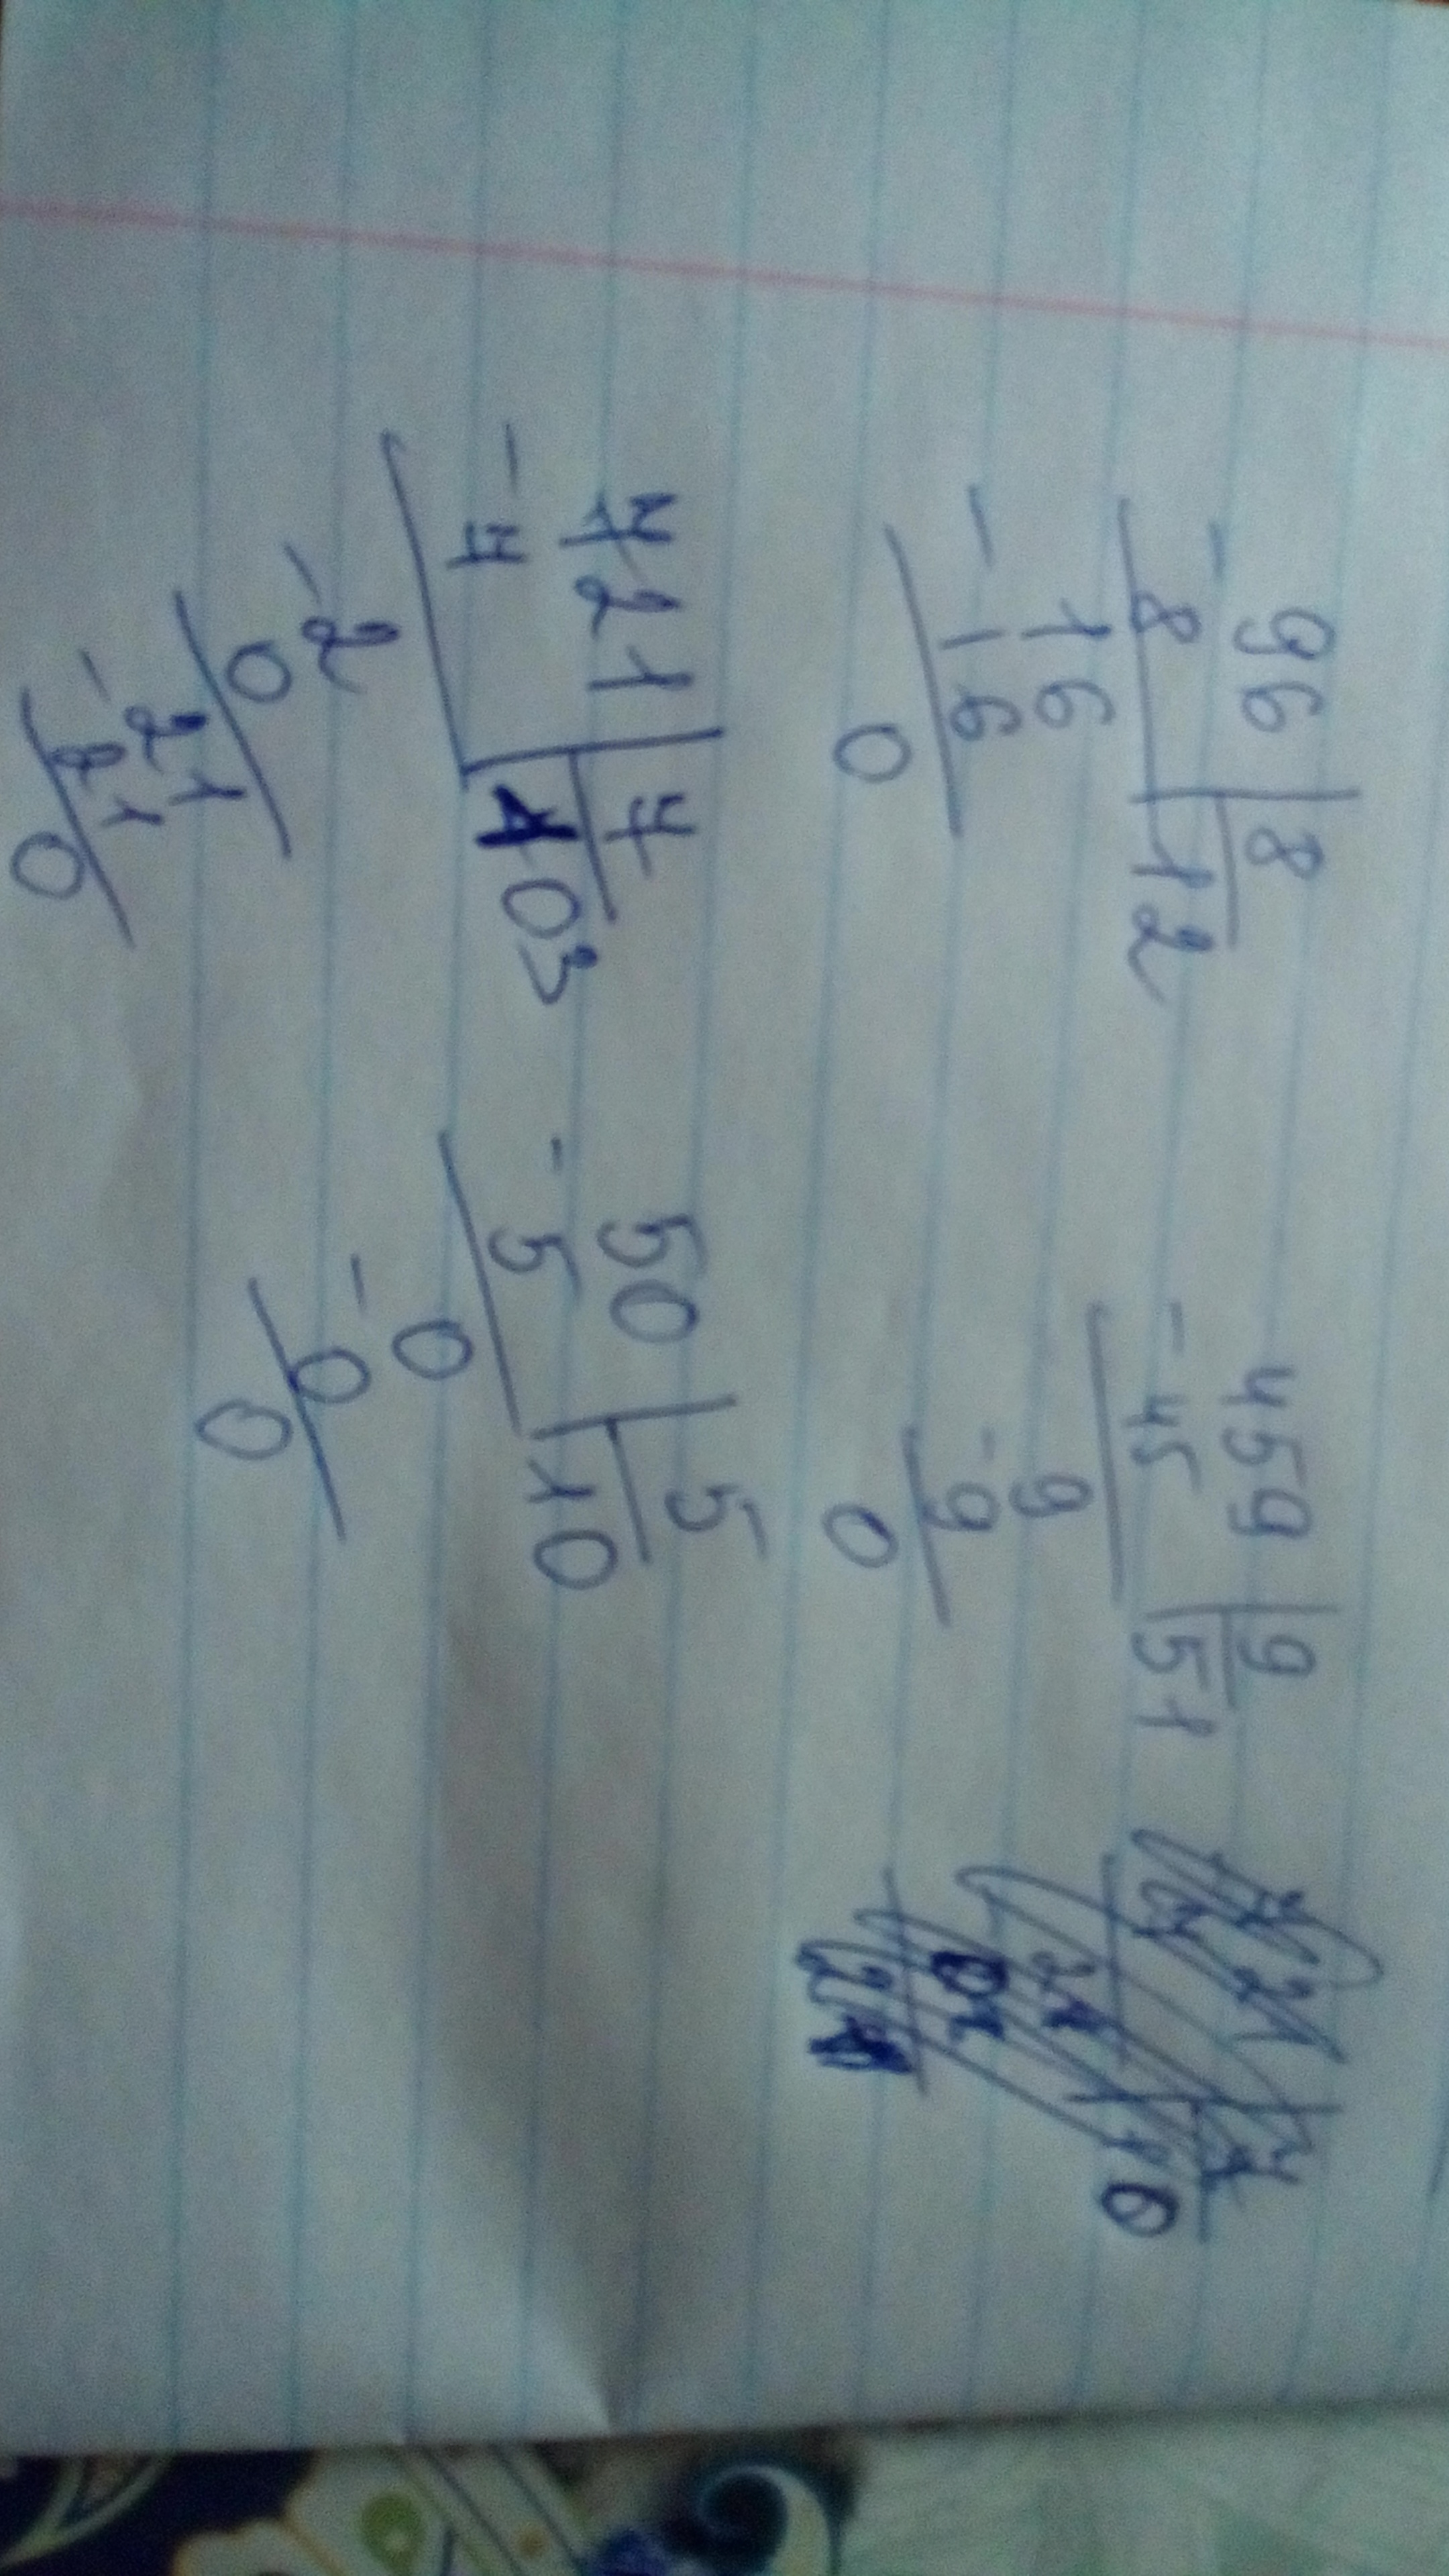 96 8
- 8 12
16
- 16
0
459 9
- 45 51
9
- 9
0
721 7
- 7 103
2
- 0
21
- 21
0
50 5
- 5 10
0
- 0
0